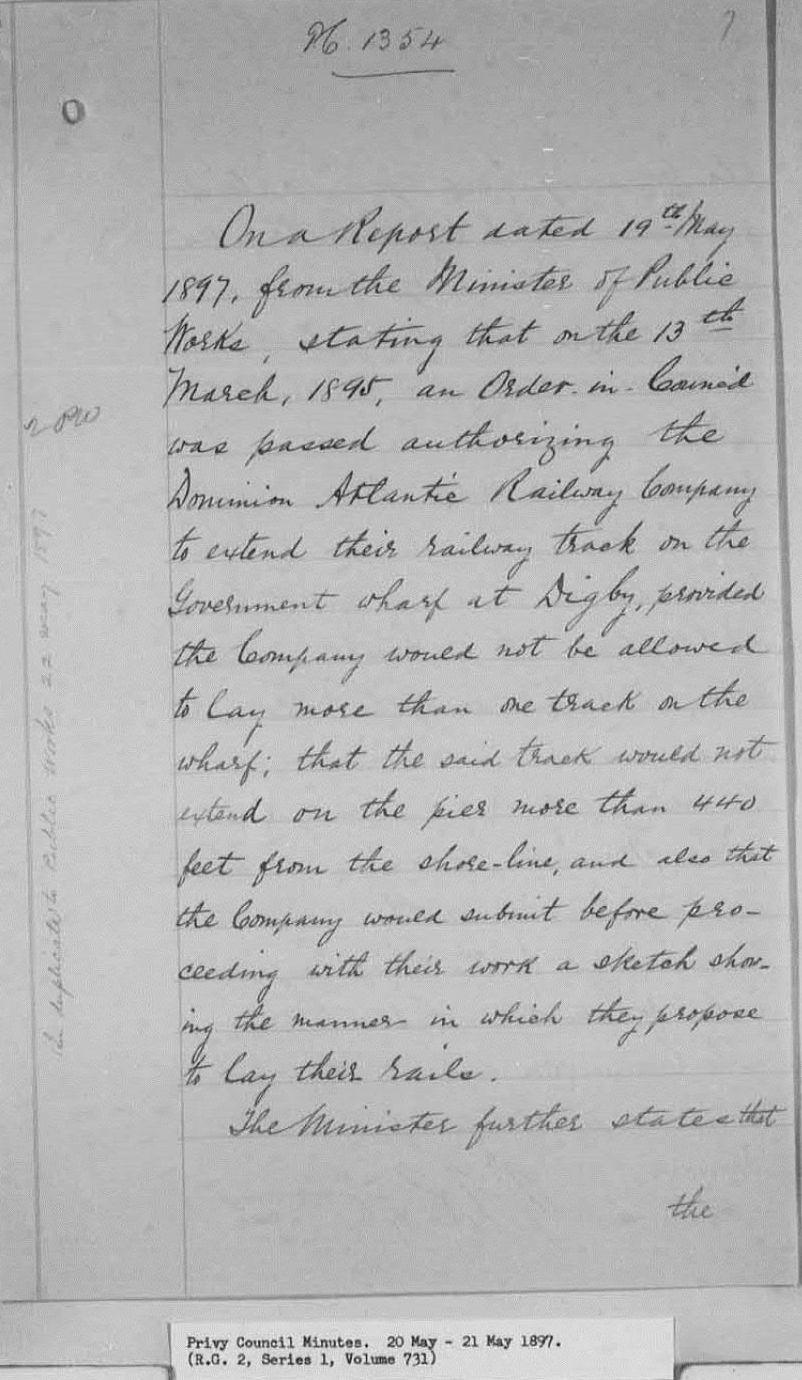 H. 1354
7
O
On a Report dated 19th May
1897, from the Minister of Public
Works, stating that on the 13th
March, 1895, an Order-in-Council
was passed authorizing the
Dominion Atlantic Railway Company
to extend their railway track on the
Government wharf at Digby, provided
the Company would not be allowed
to lay more than one track on the
wharf; that the said track would not
extend on the pier more than 440
feet from the shore-line, and also that
the Company would submit before pro-
ceeding with their work a sketch show-
ing the manner in which they propose
to lay their rails.
The Minister further states that
the
2 PW
In duplicate to Public Works 22 May 1897
Privy Council Minutes. 20 May - 21 May 1897.
(R.G. 2, Series 1, Volume 731)